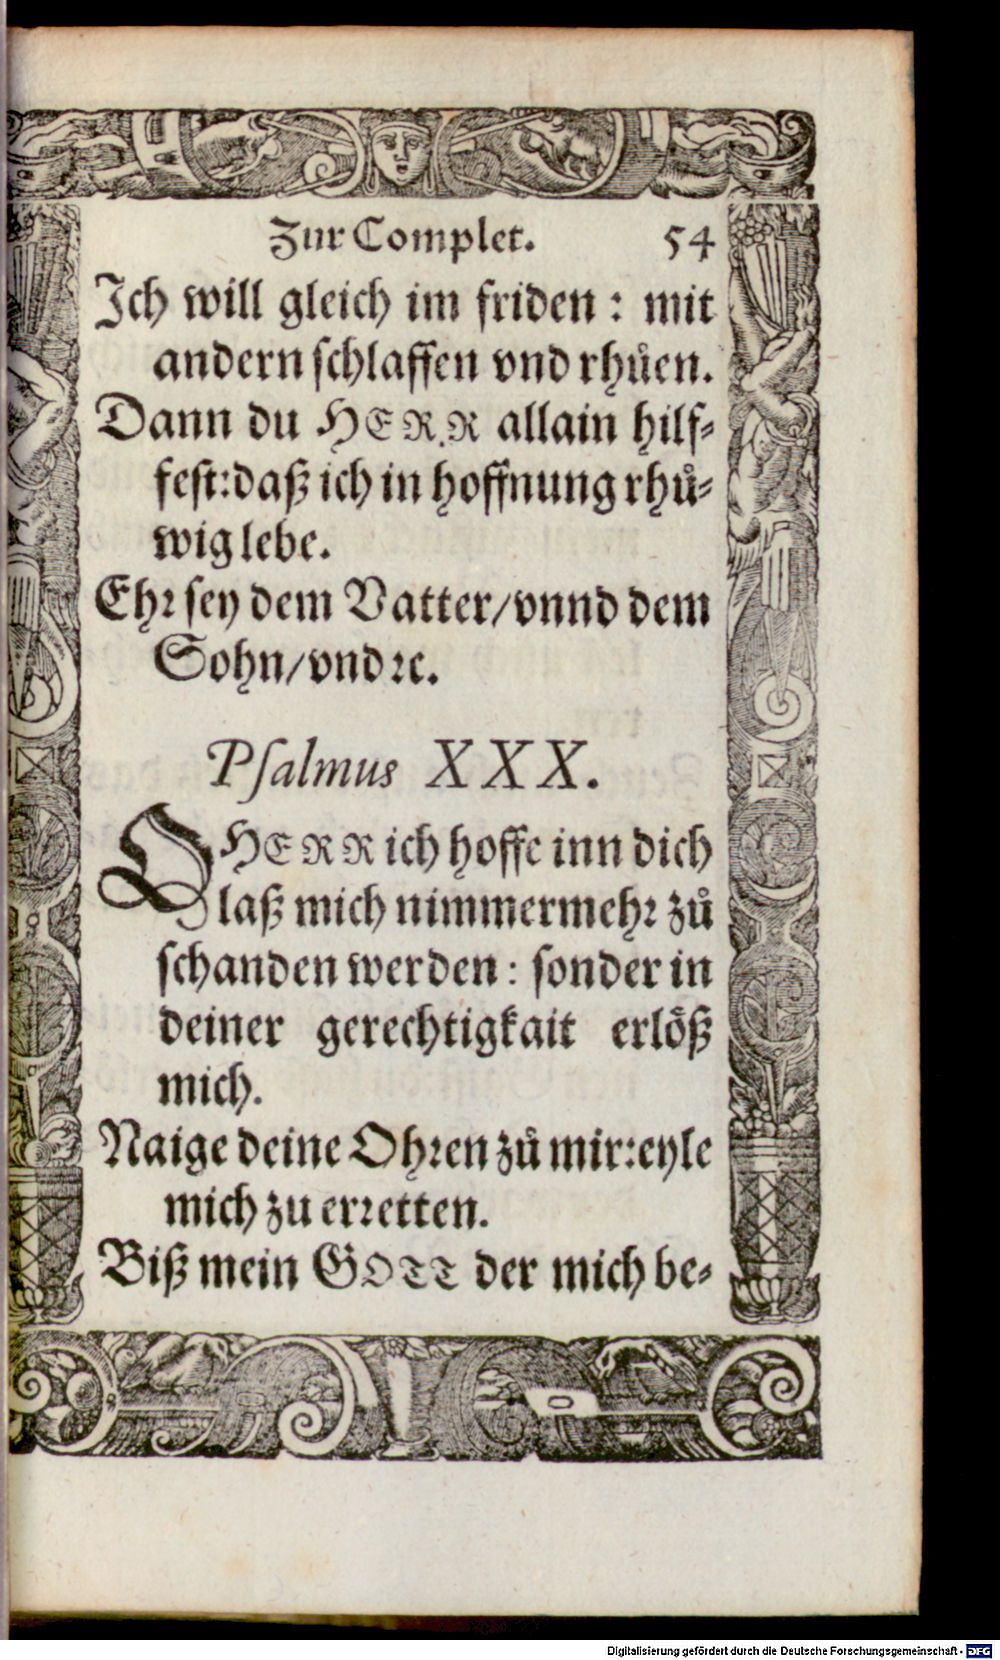 Zur Complet. 54
Ich will gleich im friden : mit
andern schlaffen vnd rhůen.
Dann du HERR allain hilf⸗
fest:daß ich in hoffnung rhů⸗
wig lebe.
Ehr sey dem Vatter/vnnd dem
Sohn/vnd ꝛc.
Psalmus XXX.
O HERR ich hoffe inn dich
laß mich nimmermehr zů
schanden werden : sonder in
deiner gerechtigkait erlöß
mich.
Naige deine Ohren zů mir:eyle
mich zu erretten.
Biß mein GOTT der mich be⸗
Digitalisierung gefördert durch die Deutsche Forschungsgemeinschaft - DFG